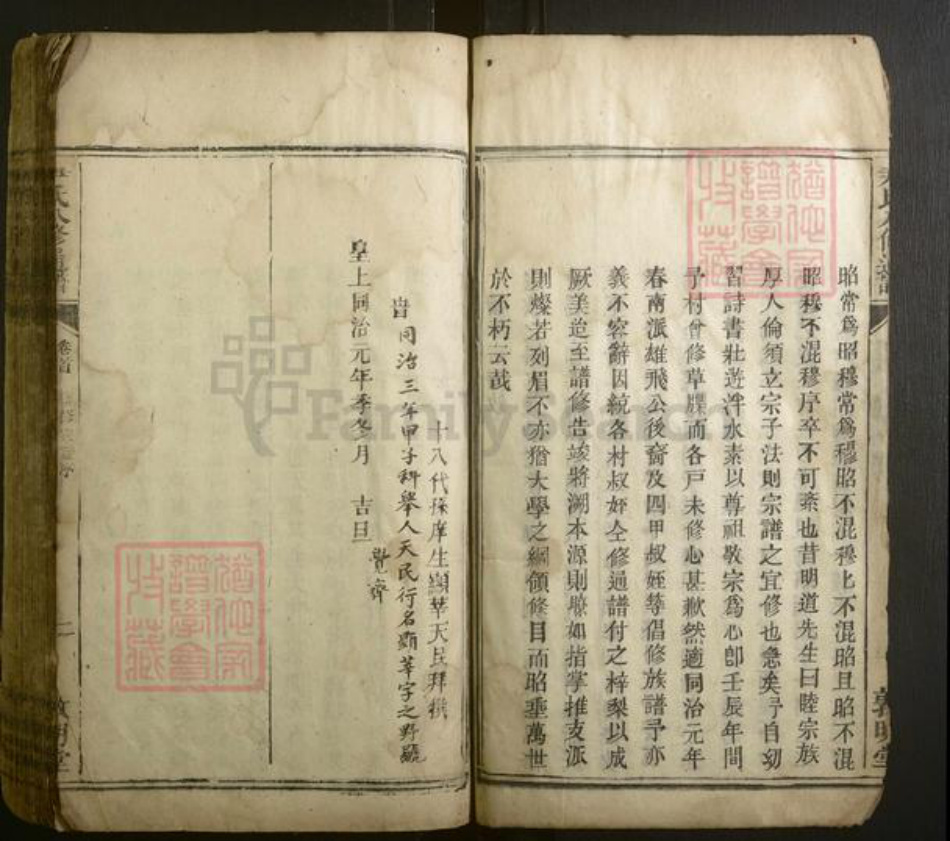 昭常為昭穆常為穆昭不混穆上不混昭且昭不混
昭穆不混穆序卒不可紊也昔明道先生曰睦宗族
厚人倫須立宗子法則宗譜之宜修也急矣予自幼
習詩書壯遊泮水素以尊祖敬宗為心卽壬辰年間
予村曾修草牒而各戶未修心甚歉然適同治元年
春南派雄飛公後裔及四甲叔姪等倡修族譜予亦
義不容辭因統各村叔姪仝修通譜付之梓梨以成
厥美迨至譜修告竣將溯本源則瞭如指掌推支派
則燦若列眉不亦猶大學之綱領條目而昭垂萬世
於不朽云哉
十八代孫庠生顯莘天民拜撰
同治三年甲子科舉人天民行名顯莘字之野號
覺齋
皇上同治元年季冬月 吉旦
敦明堂
卷首
FamilySearch
譜學會
收藏